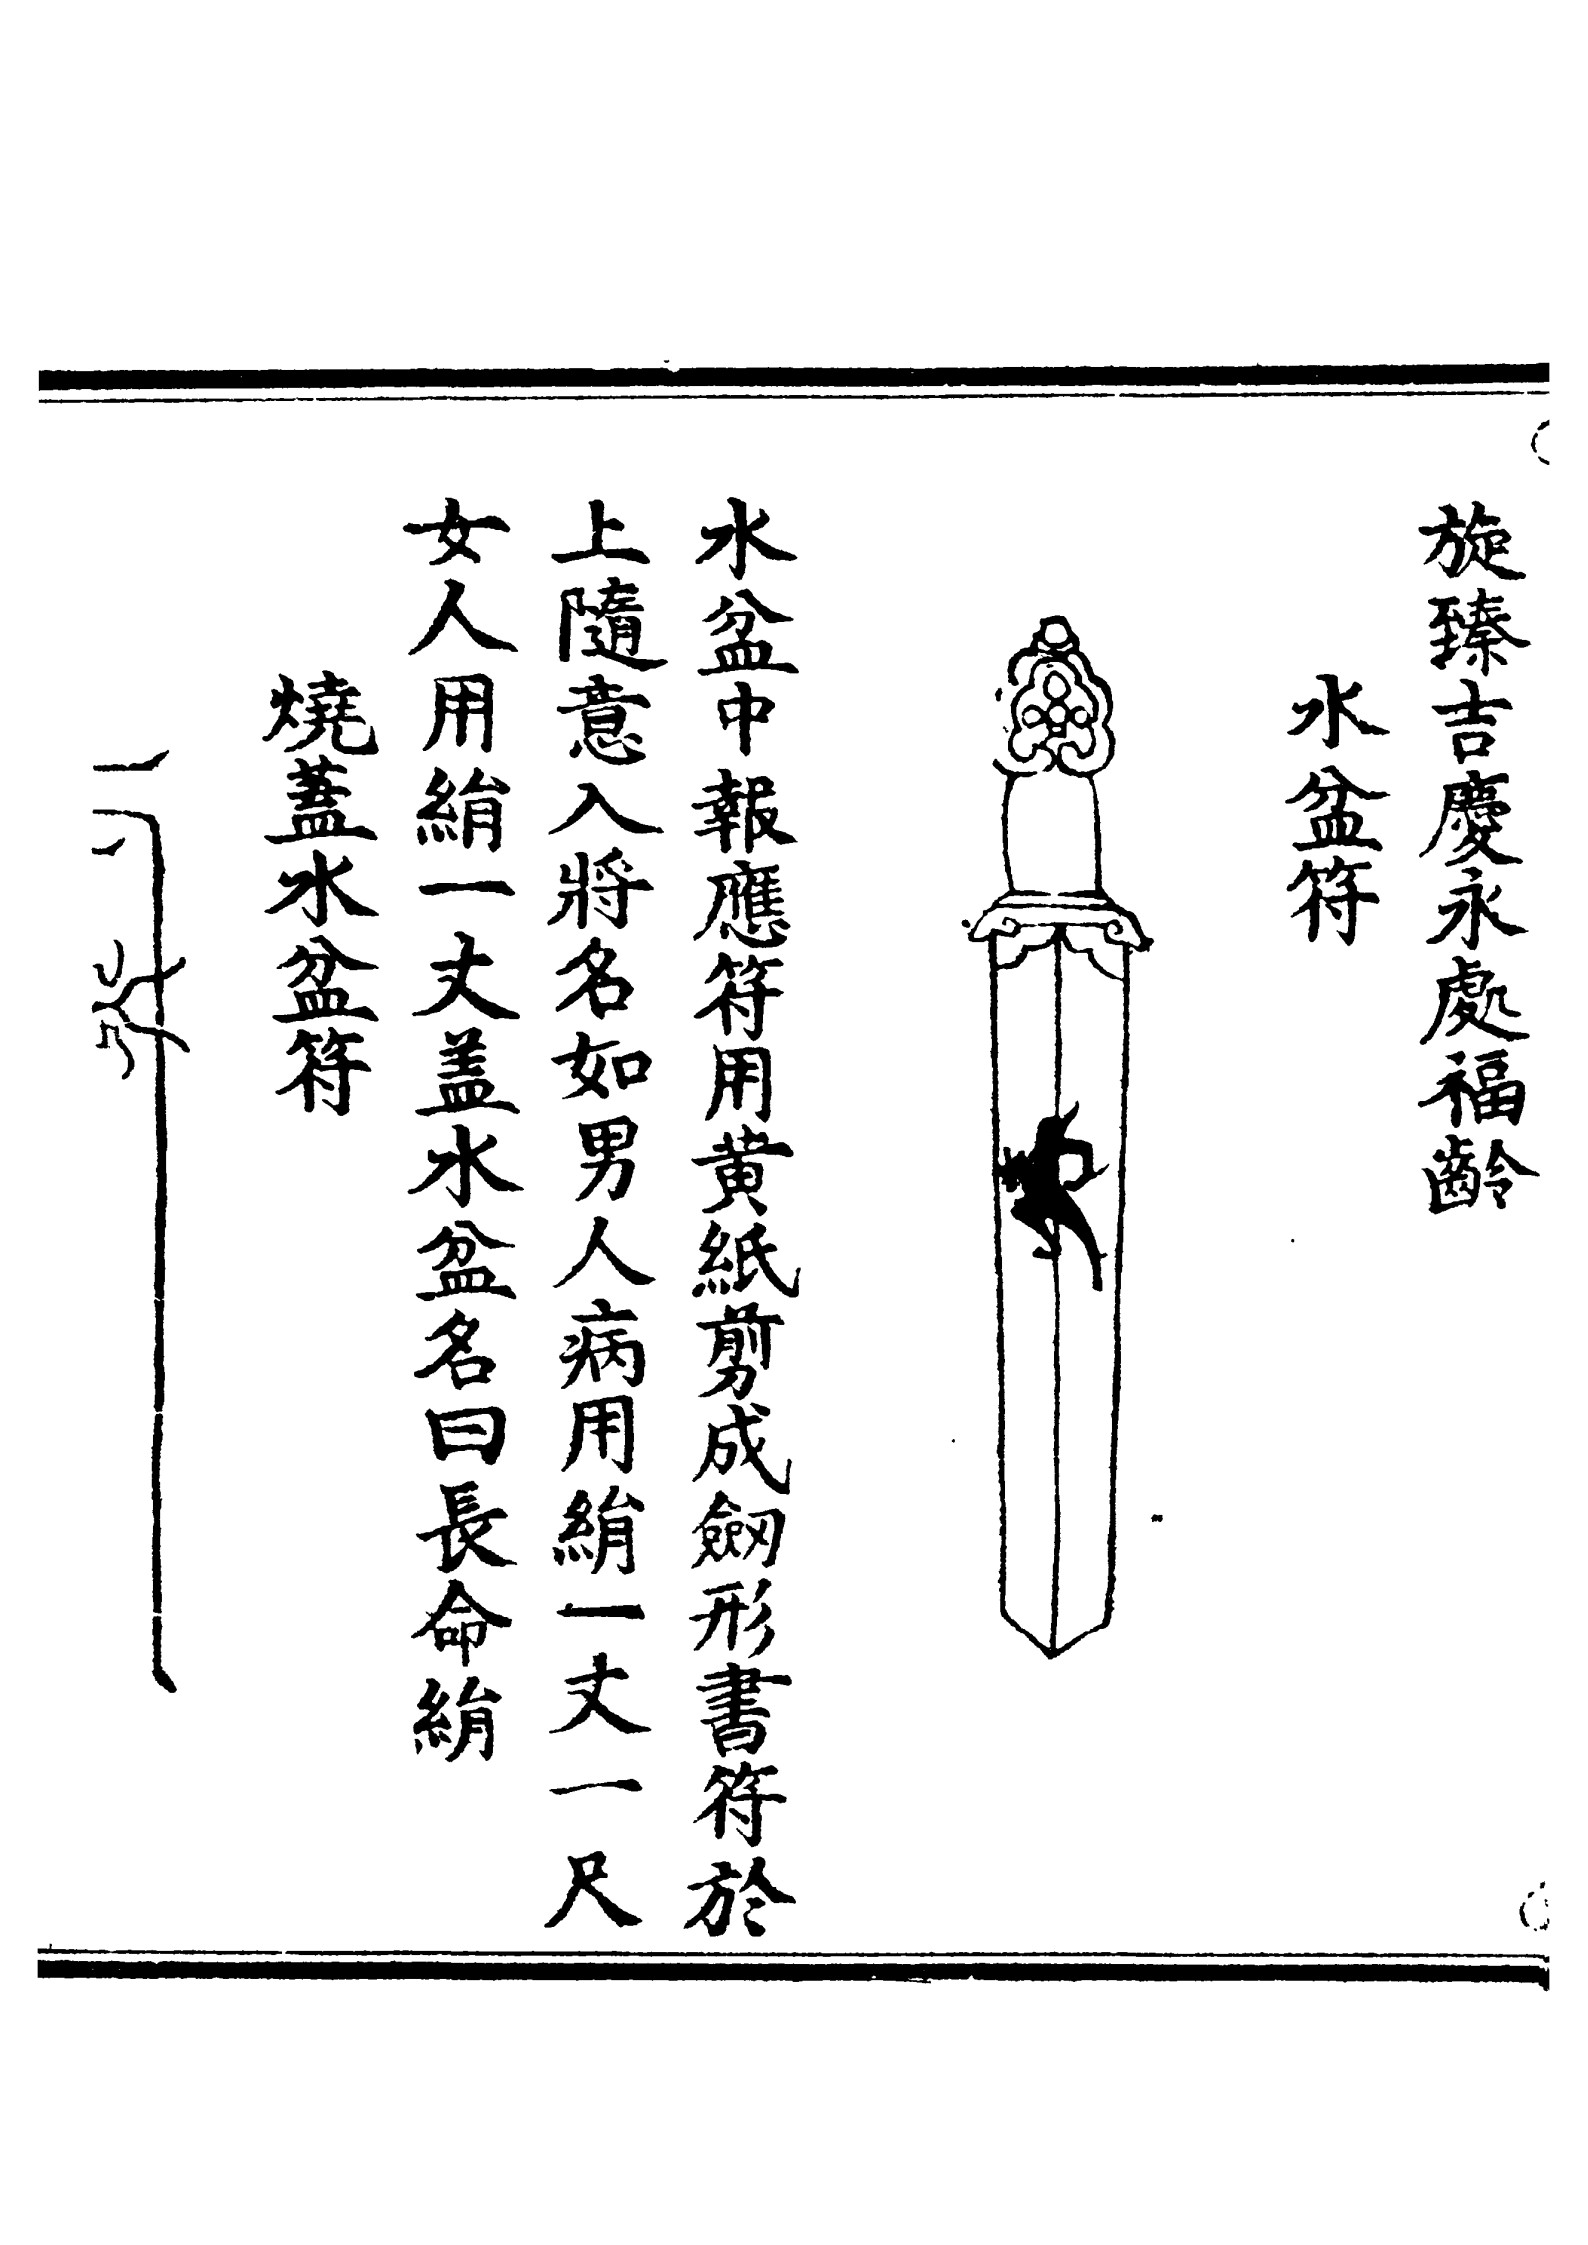 旋臻吉慶永處福齡
水盆符
水盆中報應符用黄紙剪成劔形書符於
上隨意入將名如男人病用絹一丈一尺
女人用絹一丈盖水盆名曰長命絹
燒蓋水盆符